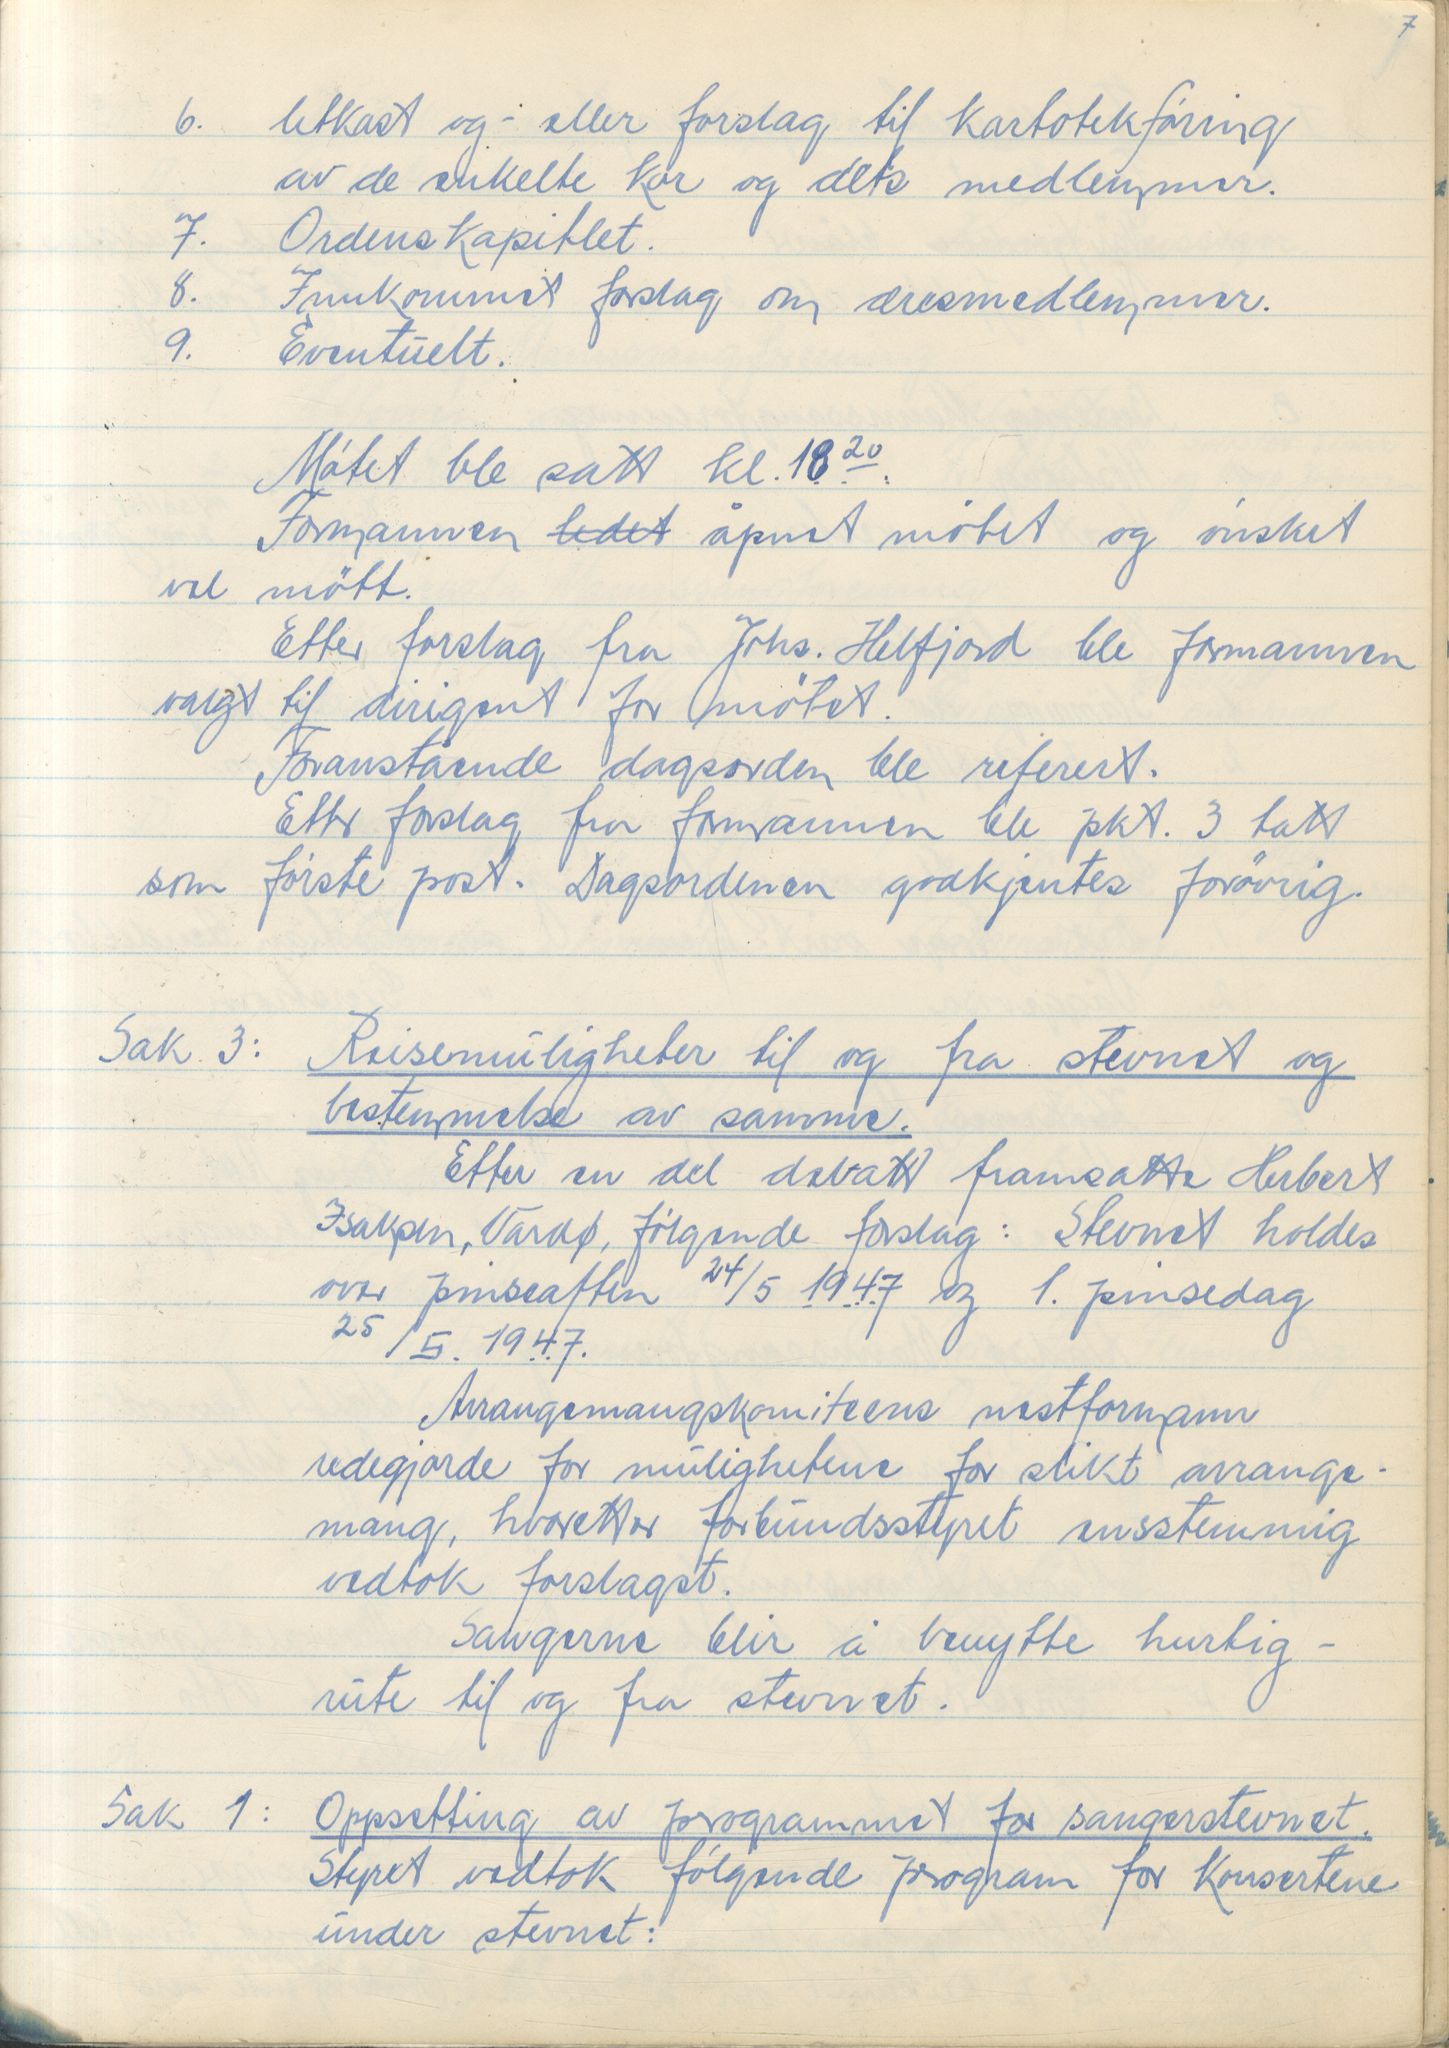 7
6. Utkast og- eller forslag til kartotekføring
av de enkelte kor og dets medlemmer.
7. Ordenskapitlet.
8. Innkommet forslag om æresmedlemmer.
9. Eventuelt.
Møtet ble satt kl. 18 20.
Formannen ledet åpnet møtet og ønsket
vel møtt.
Etter forslag fra Johs. Helfjord ble formannen
valgt til dirigent for møtet.
Foranstående dagsorden ble referert.
Etter forslag fra formannen ble pkt. 3 tatt
som første post. Dagsordenen godkjentes forøvrig.
Sak 3: Reisemuligheter til og fra stevnet og
bestemmelse av samme.
Etter en del debatt framsatte Herbert
Isaksen, Vardø, følgende forslag: Stevnet holdes
over pinseaften 24/5 1947 og 1. pinsedag
25/5. 1947.
Arrangemangskomiteens nestformann
redegjorde for mulighetene for slikt arrange-
mang, hvoretter forbundsstyret ensstemmig
vedtok forslaget.
Sangerne blir å benytte hurtig-
rute til og fra stevnet.
Sak 1: Oppsetting av programmet for sangerstevnet.
Styret vedtok følgende program for konsertene
under stevnet: